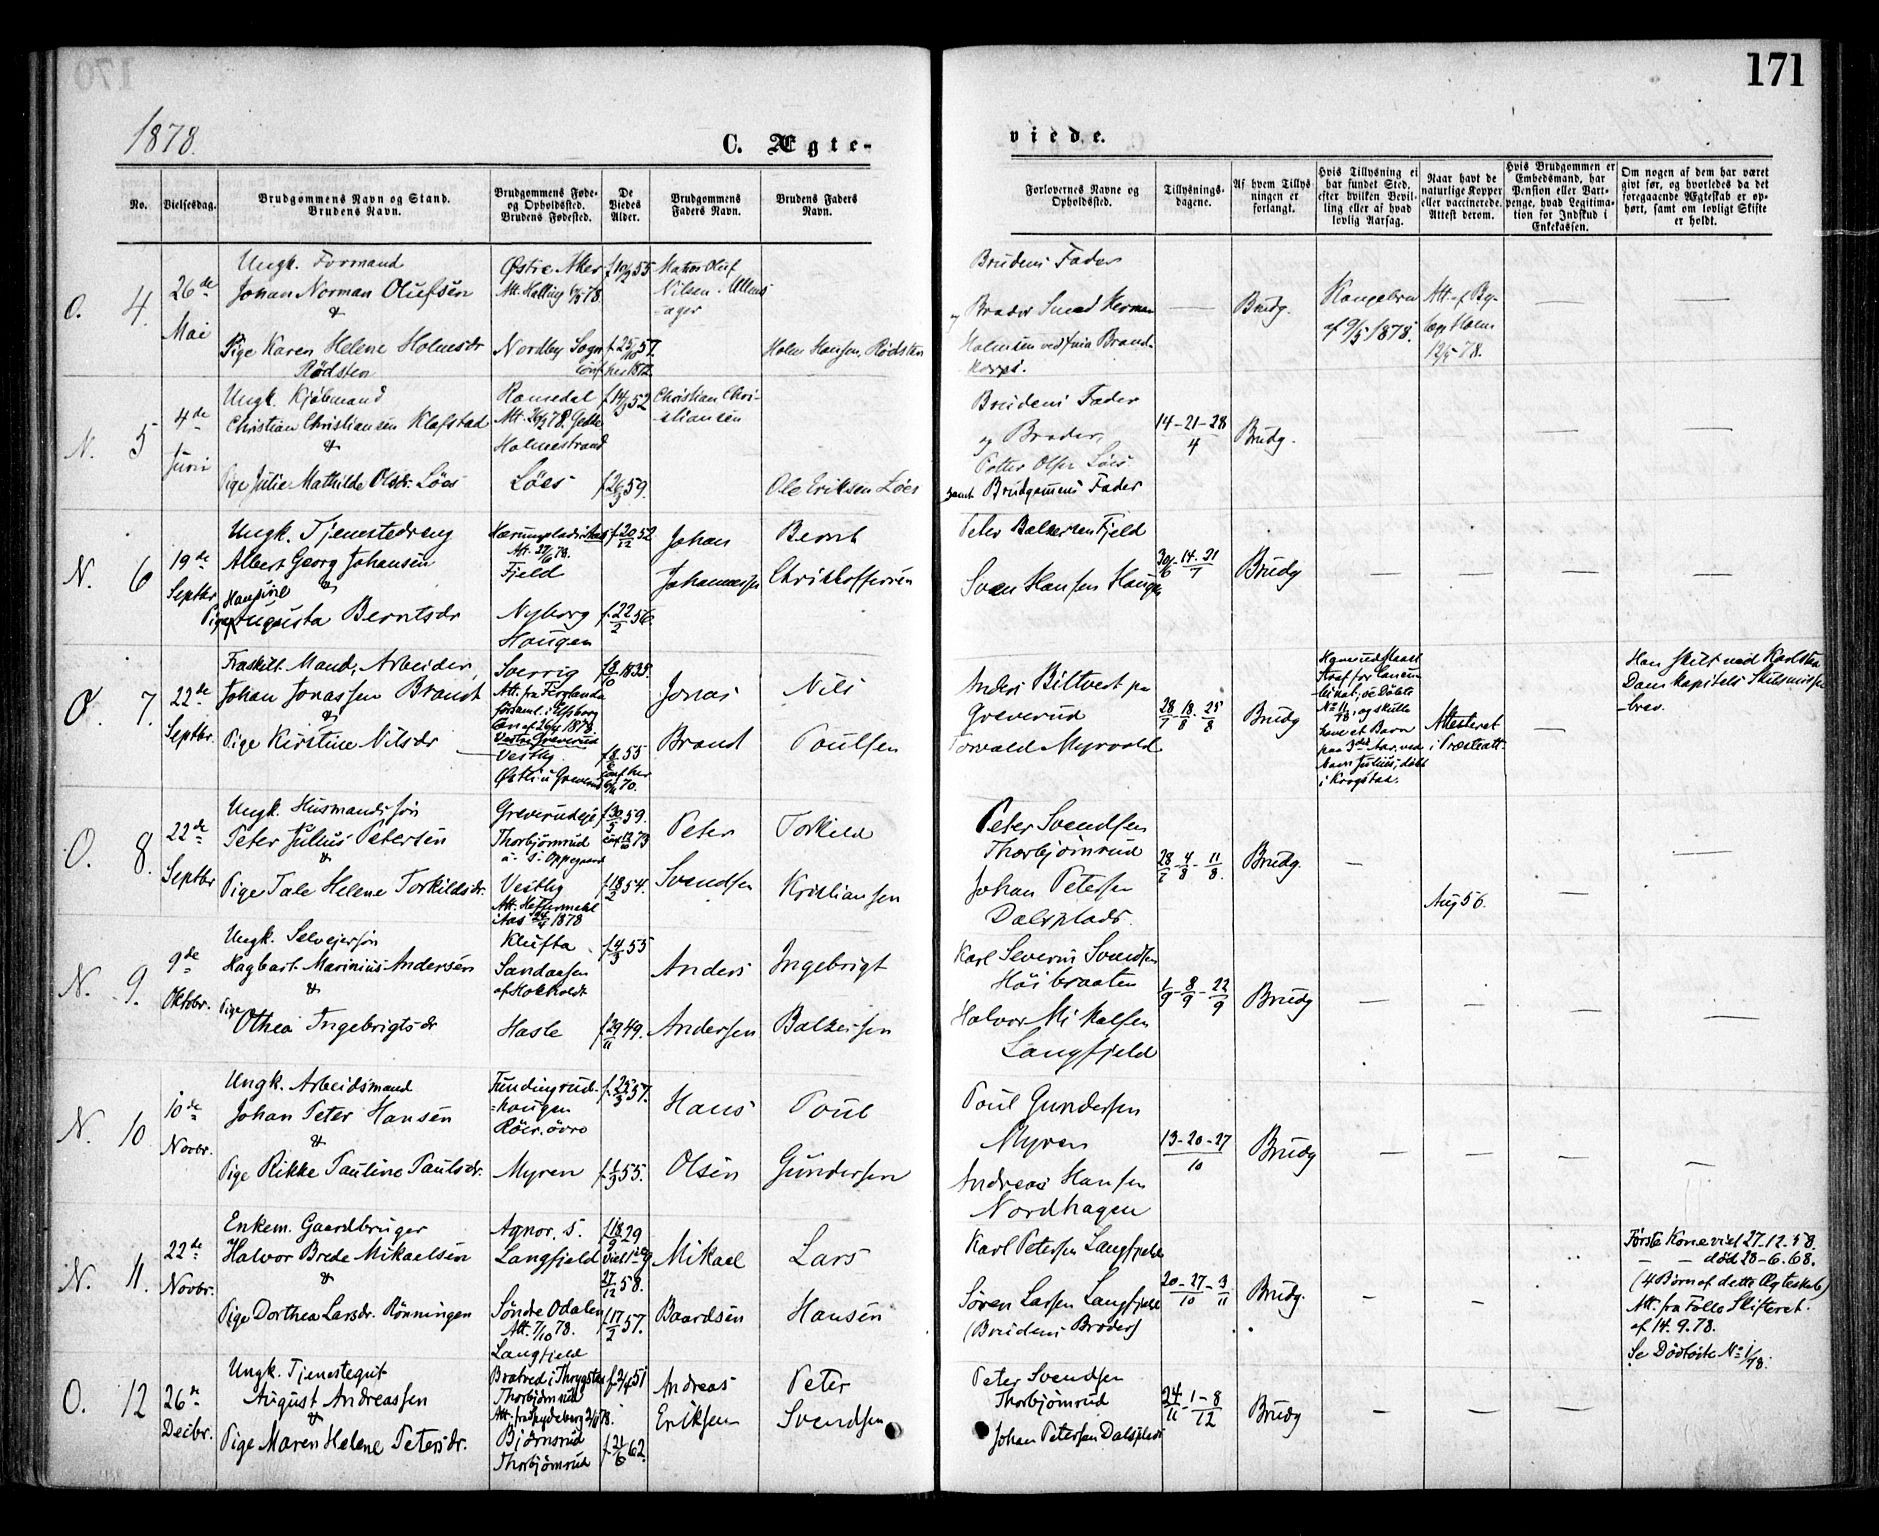 170
171
1878.
C. Ægte-
viede.
No.
Vielsesdag.
Brudgommens Navn og Stand.
Brudens Navn.
Brudgommens Føde-
og Opholdssted.
Brudens Fødested.
De
Viedes
Alder.
Brudgommens
Faders Navn.
Brudens Faders
Navn.
Forlovernes Navne og
Opholdssted.
Tillysnings-
dagene.
Af hvem Tillys
ningen er
forlangt.
Hvis Tillysning ei
har fundet Sted,
efter hvilken Bevil-
ling eller af hvad
lovlig Aarsag.
Naar havt de
naturlige Kopper
eller vaccinerede.
Attest derom.
Hvis Brudgommen er
Embedsmand, har
Pension eller Vart-
penge, hvad Legitima-
tion for Indskud i
Enkekassen.
Om nogen af dem har været
gift før, og hvorledes da det
foregaaende Ægteskab er op-
hørt, samt om lovligt Skifte
er holdt.
O. 4.
26de
Mai
Ungk. Formand
Johan Norman Olufsen
&
Pige Karen Helene Holmsdr
Rødsten
Østre Aker
Nordby Sogn
f. 10/9 55
f. 25/10 57.
Nilsen. Ullens-
ager
Holm Hansen, Rødsten
Brudens Fader
og Broder Smed Herman
Holmsen ved fria Brand-
korps.
Brudg.
Kongebrev
af 9/5 1878.
Att. af By-
læge Holm
12/5 78.
N. 5
4de
Juni
Ungk. Kjøbmand
Christian Christiansen Klafstad
&
Pige Julie Mathilde Olsdr. Løes
Ramsdal
Holmestrand
Løes
f. 14/9 52
f. 26/3 59.
Christian Chri-
stiansen
Ole Eriksen Løes
Brudens Fader
og Broder,
Petter Olsen Løes
samt Brudgomens Fader
14-21-28
4
Brudg.
N. 6
19de
Septbr
Ungk. Tjenestedreng
Albert Georg Johansen
&
Pige Augusta Berntsdr
Att. 27/6 78.
Fjeld
Nyborg
Haugen
f. 20/12 52
f. 22/2 56.
Johan
Johannessen
Bernt
Christoffersen
Peter Balzersen Fjeld
Sven Hansen Haugen
30/6 - 14-21
7
Brudg
O. 7.
22de
Septbr.
Fraskilt Mand, Arbeider,
Johan Jonassen Brandt
&
Pige Kirstine Nilsdr
Sverrig
Att. fra Färglanda
församl. i Elfsborg
Vestre Greverud
Vestby
Østli u. Greverud
Jonas
Brand
Nils
Poulsen
Anders Biltvet pa
Greverud
Torvald Myrvold
28/7 - 18/8 - 25/8
Brudg
have et Barn
i Krogstad.
Attesteret
i Præsteatt.
Han skilt ved Karlstad
Dom kapitels Skilsmisse-
brev.
O. 8.
22de
Septbr
Ungk. Husmandssøn
Peter Julius Petersen
&
Pige Tale Helene Torkildsdr.
Greverudeje,
Thorbjørnrud
u. S. Oppegaard
Vestby
i Aas 24/4 1878
f. 30/5 59.
f. 18/2 54.
Peter
Svendsen
Torkild
Kristiansen
Peter Svendsen
Thorbjørnrud
Johan Petersen
Dalsplads.
28/7 - 4/8 - 11/8.
Brudg.
Aug 56.
N. 9.
9de
Oktobr.
Ungk. Selveiersøn
Hagbart Marinius Andersen
&
Pige Othea Ingebrigtsdr
Klufta
Sandaasen
af Hokholdt
Hasle
f. 4/3 55
f. 29/11 49.
Anders
Andersen
Ingebrigt
Balzersen
Karl Severin Svendsen
Høibraaten
Halvor Mikalsen
Langfjeld
1/9 - 8/9 - 22/9
Brudg
N. 10.
10de
Novbr.
Ungk. Arbeidsmand
Johan Peter Hansen
&
Pige Rikke Pauline Paulsdr.
Fundingrud-
=haugen
Røer. øvre
Myren
f. 25/3 57.
f. 1/3 55.
Hans
Olsen
Poul
Gundersen
Poul Gundersen
Myren
Andreas Hansen
Nordhagen
13-20-27
10
Brudg
N. 11.
22de
Novbr.
Enkem. Gaardbruger
Halvor Brede Mikaelsen
&
Pige Dorthea Larsdr. Rønningen
Agnor. S.
Langfjeld
Søndre Odalen
Att. 7/10 78.
Langfjeld
f. 18/9 29
27/12 58.
f. 17/2 57.
Mikael
Baardsen
Lars
Hansen
Karl Petersen Langfjeld
Søren Larsen Langfjeld
(Brudens Broder)
20-27-3
10 11
Brudg.
Første Kone viet 27-12-58.
død 28-6.68.
(4 Børn af dette Ægteskab)
Att. fra Follo Skifteret.
af 14.9.78.
Se Dødsliste No 1/78.
O. 12
26de
Decbr.
Ungk. Tjenestegut
August Andreassen
&
Pige Maren Helene Petersdr.
Thorbjørnrud
Bjørnsrud
Thorbjørnrud
f. 2/4 51
f. 21/6 62.
Andreas
Eriksen
Peter
Svendsen
Peter Svendsen
Thorbjørnrud
Johan Petersen Dalsplads
24/11 - 1-8
12
Brudg